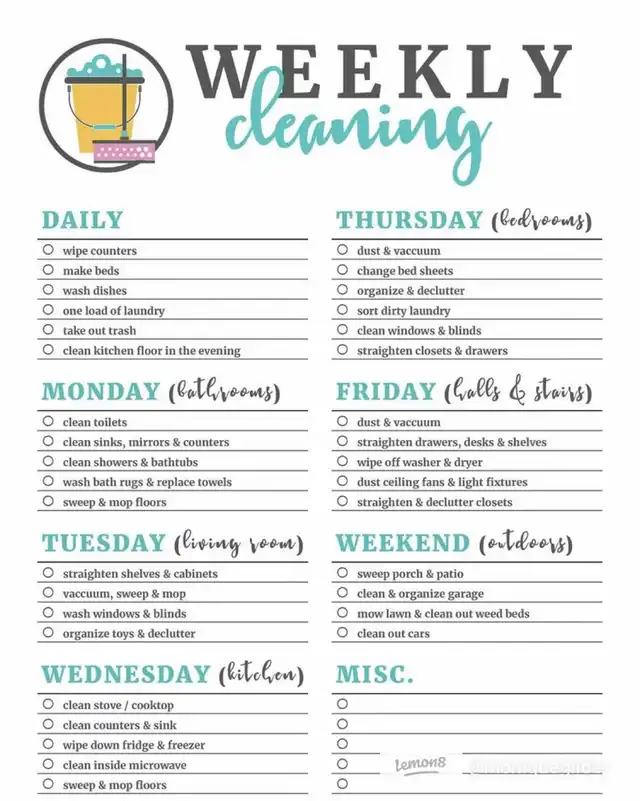 WEEKLY
cleaning
DAILY
wipe counters
make beds
wash dishes
one load of laundry
take out trash
clean kitchen floor in the evening
MONDAY (bathrooms)
clean toilets
clean sinks, mirrors & counters
clean showers & bathtubs
wash bath rugs & replace towels
sweep & mop floors
TUESDAY (living room)
straighten shelves & cabinets
vaccuum, sweep & mop
wash windows & blinds
organize toys & declutter
WEDNESDAY (kitchen)
clean stove / cooktop
clean counters & sink
wipe down fridge & freezer
clean inside microwave
sweep & mop floors
THURSDAY (bedrooms)
dust & vaccuum
change bed sheets
organize & declutter
sort dirty laundry
clean windows & blinds
straighten closets & drawers
FRIDAY (halls & stairs)
dust & vaccuum
straighten drawers, desks & shelves
wipe off washer & dryer
dust ceiling fans & light fixtures
straighten & declutter closets
WEEKEND (outdoors)
sweep porch & patio
clean & organize garage
mow lawn & clean out weed beds
clean out cars
MISC.
lemon8